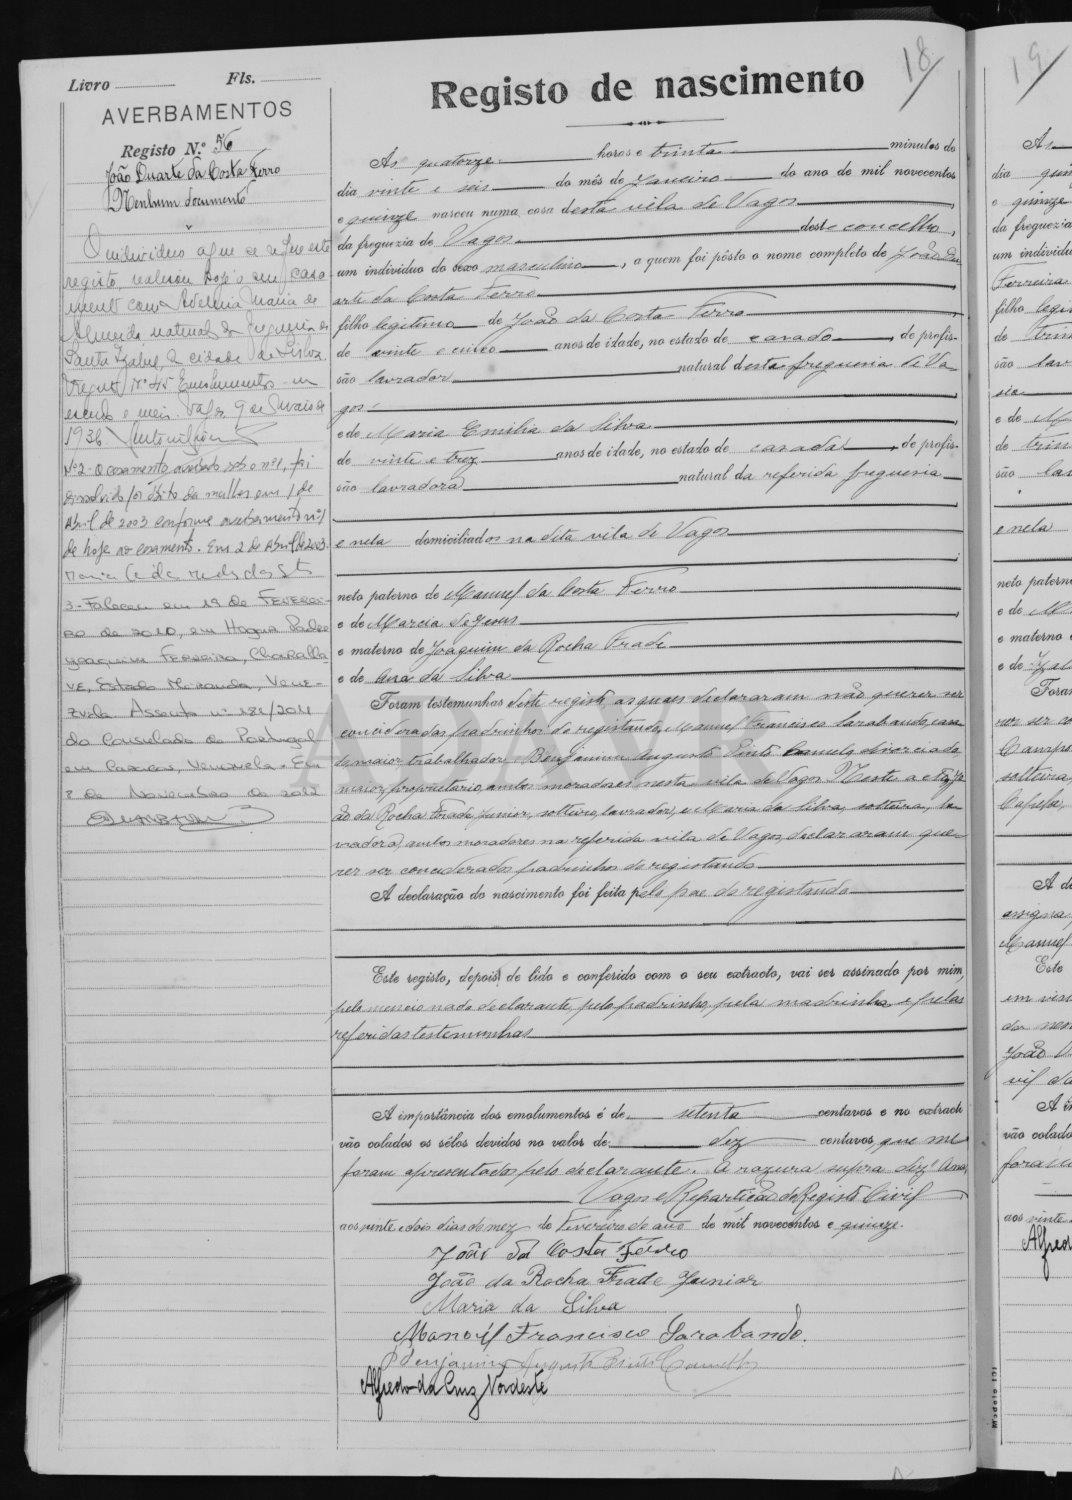 Livro Fls.
AVERBAMENTOS
Registo N.º 56
João Duarte da Costa Ferro
Nenhum documento
O individuo a que se refere este
registo, realisou hoje o seu casa
mento com Adelina Maria de
Almeida, natural da freguesia de
Santa Izabel, da cidade de Lisboa
Registo Nº 45 Emolumentos um
escudo e meio. Vagos, 9 de Maio de
1936
Nº2 - O casamento averbado sob o nº1, foi
dissolvido por óbito da mulher em 1 de
Abril de 2003 conforme averbamento nº1
de hoje ao casamento. Em 2 de Abril de 2003.
3 - Faleceu em 19 de Feverei-
ro de 2010, em Hogar Padre
Joaquim Ferreira, Charalla-
ve, Estado Miranda, Vene-
zuela. Assento nº 181/2011
do Consulado de Portugal
em Caracas, Venezuela. Em
8 de Novembro de 2012
18
Registo de nascimento
As quatorze horas e trinta minutos do
dia vinte e seis do mês de Janeiro do ano de mil novecentos
e quinze nasceu numa casa desta vila de Vagos
da freguezia de Vagos deste concelho,
um individuo do sexo masculino, a quem foi pôsto o nome completo de João Du
arte da Costa Ferro
filho legitimo de João da Costa Ferro
de vinte e cinco anos de idade, no estado de casado, de profis-
são lavrador natural desta freguesia de Va
gos
e de Maria Emilia da Silva
de vinte e trez anos de idade, no estado de casada, de profis-
são lavradora natural da referida freguesia
e nela domiciliados na dita vila de Vagos
neto paterno de Manuel da Costa Ferro
e de Maria de Jesus
e materno de Joaquim da Rocha Frade
e de Ana da Silva
Foram testemunhas deste registo, as quaes declararam não querer ser
consideradas padrinhos do registando, Manuel Francisco Sarabando, casa
do, maior, trabalhador e Benjamim Augusto Pinto Camelo, divorciado,
maior, proprietario, ambos moradores nesta vila de Vagos. Neste acto, Jo
ão da Rocha Frade Junior, solteiro, lavrador, e Maria da Silva, solteira, la
vradora, ambos moradores na referida vila de Vagos, declararam que-
rer ser considerados padrinhos do registando
A declaração do nascimento foi feita pelo pae do registando
Este registo, depois de lido e conferido com o seu extracto, vai ser assinado por mim,
pelo mencionado declarante, pelo padrinho, pela madrinha e pelas
referidas testemunhas
A importância dos emolumentos é de setenta centavos e no extracto
vão colados os sêlos devidos no valor de dez centavos, que me
foram apresentados pelo declarante. A razura supra diz: Ana
Vagos e Repartição do Registo Civil
aos vinte e dois dias do mez de Fevereiro do ano de mil novecentos e quinze.
João da Costa Ferro
João da Rocha Frade Junior
Maria da Silva
Manoel Francisco Sarabando.
Benjamim Augusto Pinto Camello
Alfredo da Cruz Nordeste
19
Modelo 131